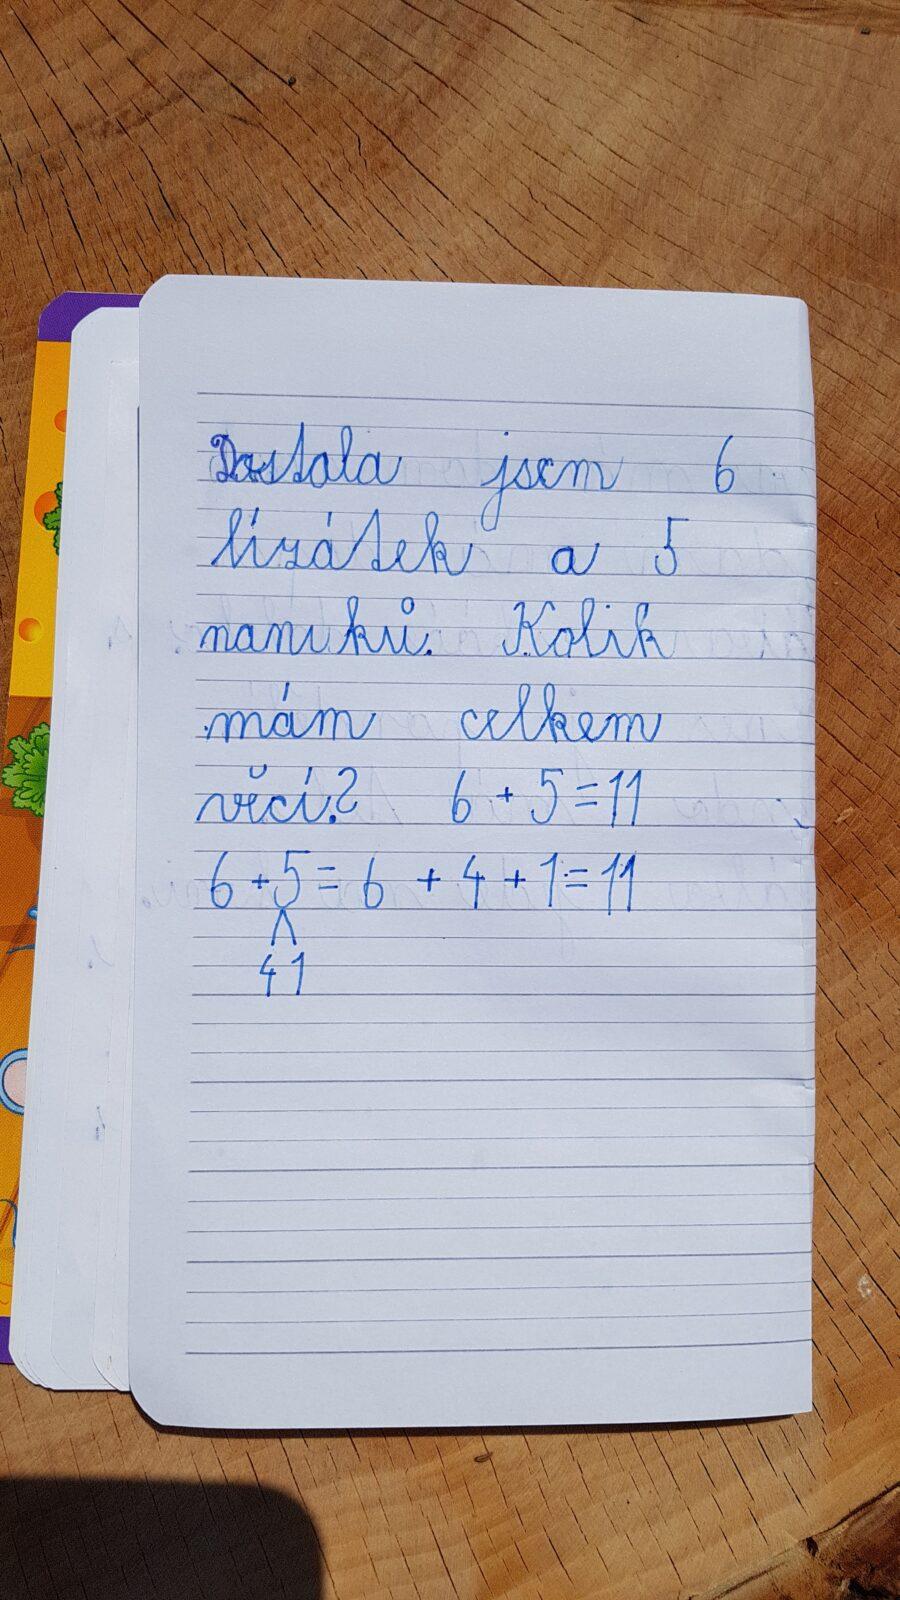 Dostala jsem 6
lízátek a 5
naniků. Kolik
mám celkem
věcí? 6 + 5 = 11
6 + 5 = 6 + 4 + 1 = 11
4 1